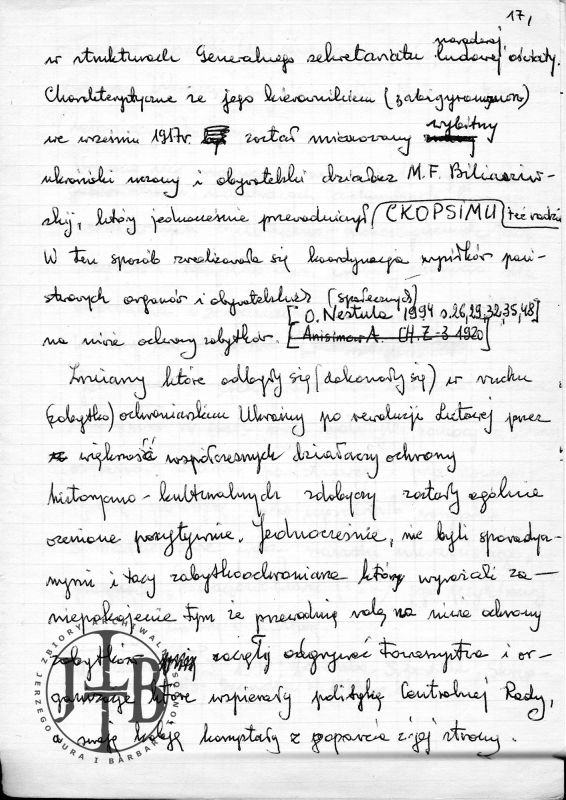 17,
w strukturach Generalnego sekretariatu narodowej ludowej oświaty.
Charakterystyczne że jego kierownikiem (
we wrześniu 1917r. został mianowany wybitny
ukraiński uczony i obywatelski działacz M.F. Biliasziw-
skij, który jednocześnie przewodniczył CKOPSIMU też radzie
W ten sposób zrealizowała się koordynacja wysiłków pań-
stwowych organów i obywatelskich (społecznych)
[O. Nestula 1994 s.26,29,32,35,48]
na niwie ochrony zabytków. [Anisimow A. CH.Z-3 1920]
Zmiany które odbyły się (dokonały się) w ruchu
(zabytko)ochroniarskim Ukrainy po rewolucji Lutowej przez
większość współczesnych działaczy ochrony
historyczno-kulturalnych zdobyczy zostały ogólnie
ocenione pozytywnie. Jednocześnie, nie byli sporadycz-
nymi i tacy zabytkoochroniarze którzy wyrażali za-
niepokojenie tym że przewodnią rolę na niwie ochrony
zabytków zaczęły odgrywać Towarzystwa i or-
ganizacje które wspierały politykę Centralnej Rady,
a swoją koleją korzystały z poparcia z jej strony.
ZBIORY ARCHIWALNE JERZEGO JURA I BARBARY TONDOS
J B